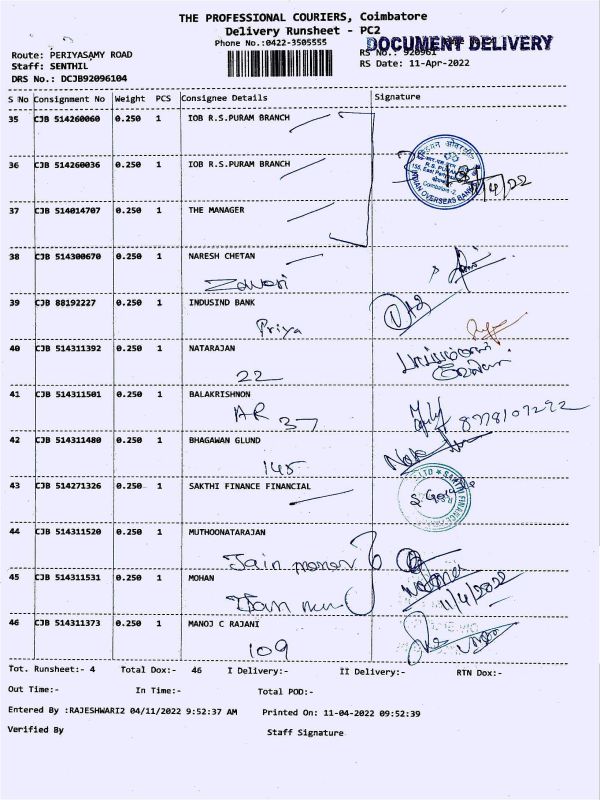 THE PROFESSIONAL COURIERS, Coimbatore
Delivery Runsheet - PC2
Phone No.:0422-3505555
DOCUMENT DELIVERY
Route: PERIYASAMY ROAD
RS No.: 920961
Staff: SENTHIL
RS Date: 11-Apr-2022
DRS No.: DCJB92096104
S No Consignment No Weight PCS Consignee Details Signature
35 CJB 514260060 0.250 1 IOB R.S.PURAM BRANCH
36 CJB 514260036 0.250 1 IOB R.S.PURAM BRANCH
R.S. PURAM
Coimbatore-2
INDIAN OVERSEAS BANK
37 CJB 514014707 0.250 1 THE MANAGER
38 CJB 514300670 0.250 1 NARESH CHETAN
39 CJB 88192227 0.250 1 INDUSIND BANK
Priya
40 CJB 514311392 0.250 1 NATARAJAN
22
41 CJB 514311501 0.250 1 BALAKRISHNON
AR 37
42 CJB 514311480 0.250 1 BHAGAWAN GLUND
145
43 CJB 514271326 0.250 1 SAKTHI FINANCE FINANCIAL
44 CJB 514311520 0.250 1 MUTHOONATARAJAN
Jain
45 CJB 514311531 0.250 1 MOHAN
11/4/2022
46 CJB 514311373 0.250 1 MANOJ C RAJANI
109
Tot. Runsheet:- 4 Total Dox:- 46 I Delivery:- II Delivery:- RTN Dox:-
Out Time:- In Time:- Total POD:-
Entered By :RAJESHWARI2 04/11/2022 9:52:37 AM Printed On: 11-04-2022 09:52:39
Verified By Staff Signature